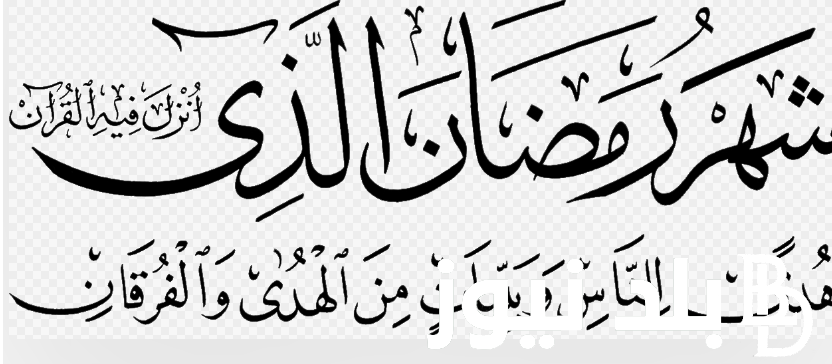 شَهْرُ رَمَضَانَ الَّذِي أُنْزِلَ فِيهِ الْقُرْآنُ
هُدًى لِلنَّاسِ وَبَيِّنَاتٍ مِنَ الْهُدَىٰ وَالْفُرْقَانِ
بلد نيوز
B